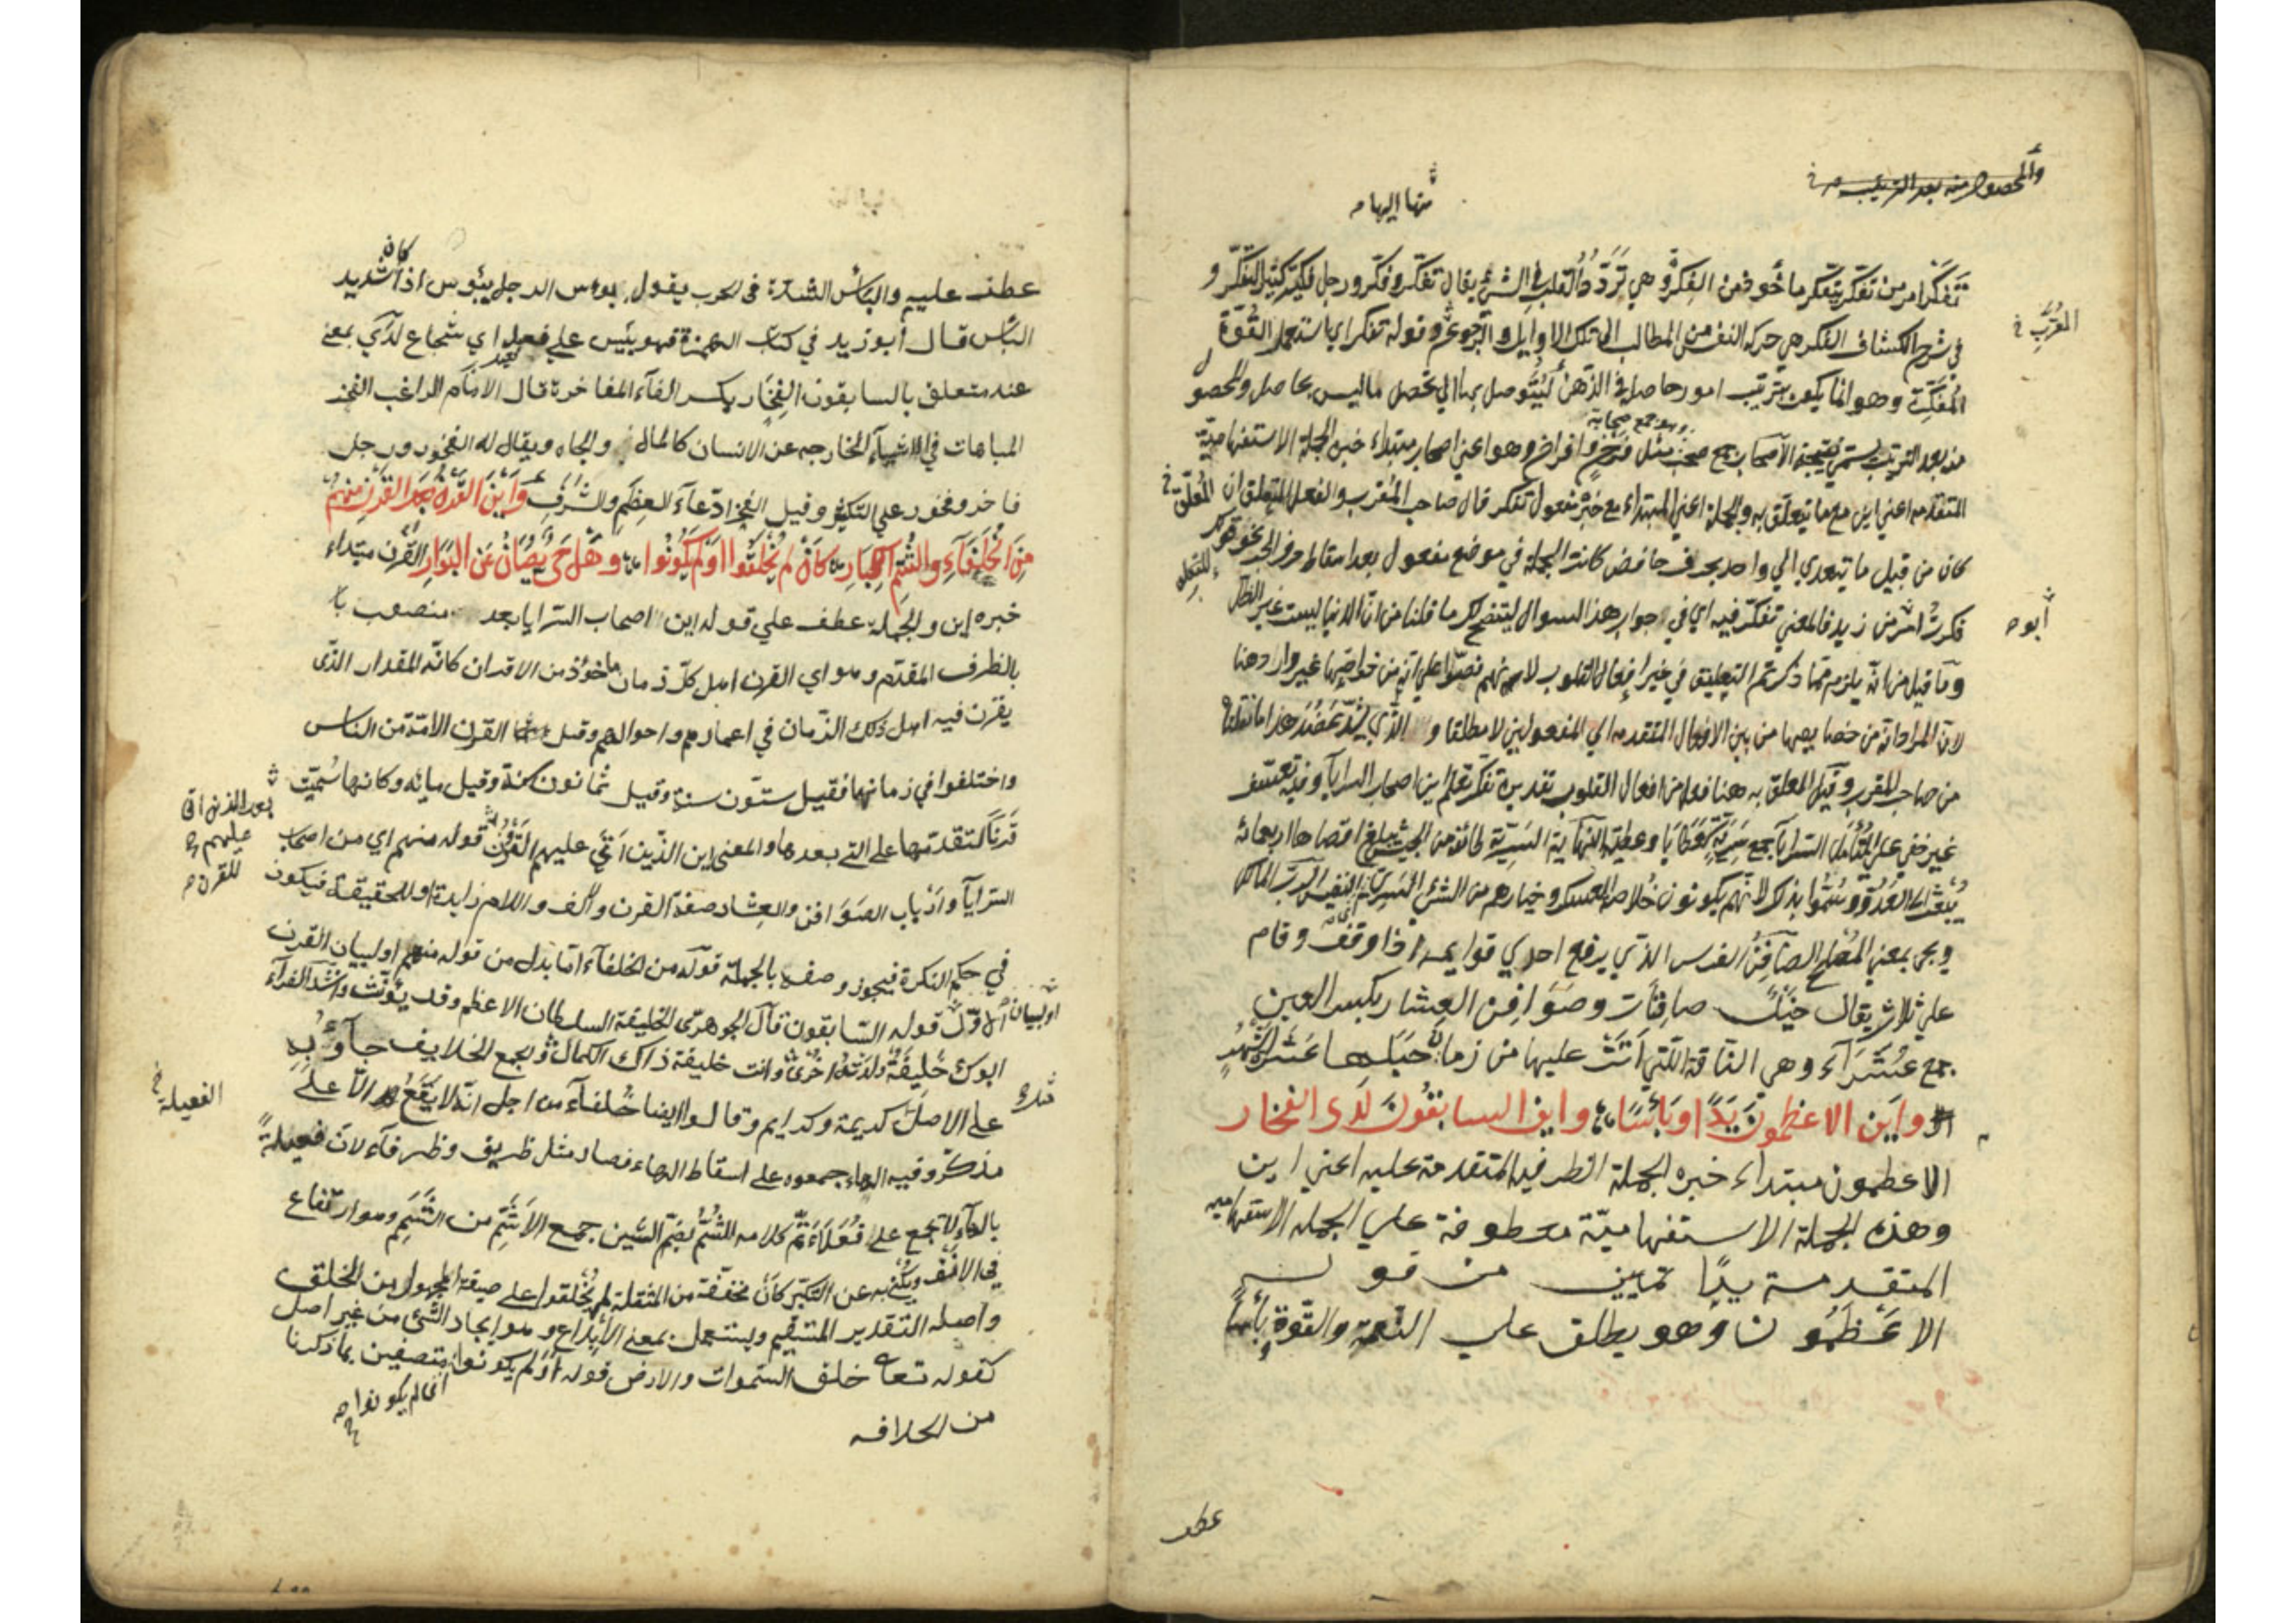 والمحصول منه بعد الترتيب
منها اليها
تفكر امر من تفكر يتفكر ماخوذ من الفكرة وهي تردد القلب في الشيء يقال تفكر وفكر ورجل فكير كثير التفكر و
المغرب
في شرح الكشاف الفكر هي حركة النفس من المطالب الى تلك الاوايل والرجوع وقوله تفكر اي استعمل القوة
المفكرة وهو انما يكون بترتيب امور حاصل في الذهن ليتوصل بها الي تحصل ماليس بحاصل والمحصو ل
وهو جمع صحابة
منه بعد الترتيب يسمى نتيجة الاصحاب جمع صحب مثل فرخ وافراخ وهو اعني اصحاب مبتداء خبره الجملة الاستفهامية
المتقدمه اعني اين مع ما يتعلق به والجملة اعني المبتداء مع خبره مفعول تفكر قال صاحب المغرب والفعل المتعلق ان المعلق
كان من قبيل ما يتعدي الي واحد بحرف خافض كانت الجملة في موضع مفعول بعد اسقاط حرف الجر نحو
ابوه
فكرت امن زيد فالمعني تفكر فيه اي في جواب هذا السوال ليتضح لك ما قلنا من ان الدنيا ليست غير الظل
وما قيل من انه يلزم مما ذكرتم التعليق في غير افعال القلوب لانهم نصوا علي انه من خواصها غير وارد هنا
لان المراد انه من خصايصها من بين الافعال المتقدمه الي المفعولين لا مطلقا والذي يشد عضد هذا ما نقلناه
من صاحب المقرب وقيل المعلق به هنا فعل من افعال القلوب تقديره تفكر تعلم اين اصحاب السرايا وفيه تعسف
غير خفي علي المتامل السرايا جمع سرية كعطايا وعطية النهاية السرية طائفة من الجيش يبلغ اقصاها اربعمائة
يبعث الى العدو وسموا بذلك لانهم يكونون خلاصة العسكر وخيارهم من الشيء السري النفيس
ويجي بمعني المصلح الصافن الفرس الذي يرفع احدي قوايمه اذا وقف وقام
علي ثلاث يقال خيل صافنات وصوافن العشار بكسر العين
جمع عشراء وهي الناقة اللتي اتت عليها من زمان حبلها عشرة اشهر
واين الاعظمون يدا وباسا واين السابقون لدى الفخار
الاعظمون مبتداء خبره الجملة الظرفية المتقدمة عليه اعني اين
وهذه الجملة الاستفهامية معطوفة علي الجملة الاستفهاميه
المتقدمة يدا تمييز من قوله
الاعظمون وهو يطلق علي النعمة والقوة وباسا
عطف
كان
عطف عليه والباس الشدة في الحرب يقول بوس الرجل يبوس اذا شديد
الباس قال ابو زيد في كتاب الهمزة فهو بئيس علي فعيل اي شجاع لدي بمعني
عند متعلق بالسابقون الفخار بكسر الفاء المفاخرة قال الامام الراغب الفخر
المباهات في الاشياء الخارجه عن الانسان كالمال والجاه ويقال له الفخور ورجل
فاخر وفخور علي التكثر وقيل الفخر ادعاء العظم والشرف واين القرن بعد القرن منهم
من الخلفاء والشم الكبار كان لم يخلقوا او لم يكونوا وهل حي يصان عن البوار القرن مبتداء
خبره اين والجملة عطف علي قوله اين اصحاب السرايا بعد منصوب
بالظرف المقدم وهو اي القرن اهل كل زمان ماخوذ من الاقران كانه المقدار الذي
يقرن فيه اهل ذلك الزمان في اعمارهم واحوالهم وقيل القرن الامة من الناس
واختلفوا في زمانها فقيل ستون سنة وقيل ثمانون سنة وقيل مايه وكانها سميت
بعد الذين اتى عليهم
للقرن
قرنا لتقدمها على التي بعدها والمعنى اين الذين اتى عليهم القرن قوله منهم اي من اصحاب
السرايا وارباب الصوافن والعشار صفة القرن والف واللام زايدة او للحقيقة فيكون
في حكم النكرة فيجوز وصفه بالجملة قوله من الخلفاء اما بدل من قوله منهم او لبيان القرن
او لبيان
الاول قوله السابقون قال الجوهري الخليفة السلطان الاعظم وقد يؤنث وانشد الفراء
ابوك خليفة ولدته اخرى وانت خليفة ذاك الكمال والجمع الخلايف جاؤ به
على الاصل كريمة وكرايم وقالوا ايضا خلفاء من اجل انه لا يقع الا على
الفعيلة
مذكر وفيه الهاء جمعوه على اسقاط الهاء فصار مثل ظريف وظرفاء لان فعيلة
بالهاء لا تجمع على فعلاء تم كلامه الشم بضم الشين جمع الاشم من الشمم وهو ارتفاع
في الانف ويكنى به عن التكبر كان مخففة من المثقلة لم يخلقوا على صيغة المجهول من الخلق
واصله التقدير المستقيم ويستعمل بمعنى الابداع وهو ايجاد الشي من غير اصل
كقوله تعا خلق السموات والارض قوله او لم يكونوا متصفين بما ذكرنا
اى لم يكونوا
من الخلافه